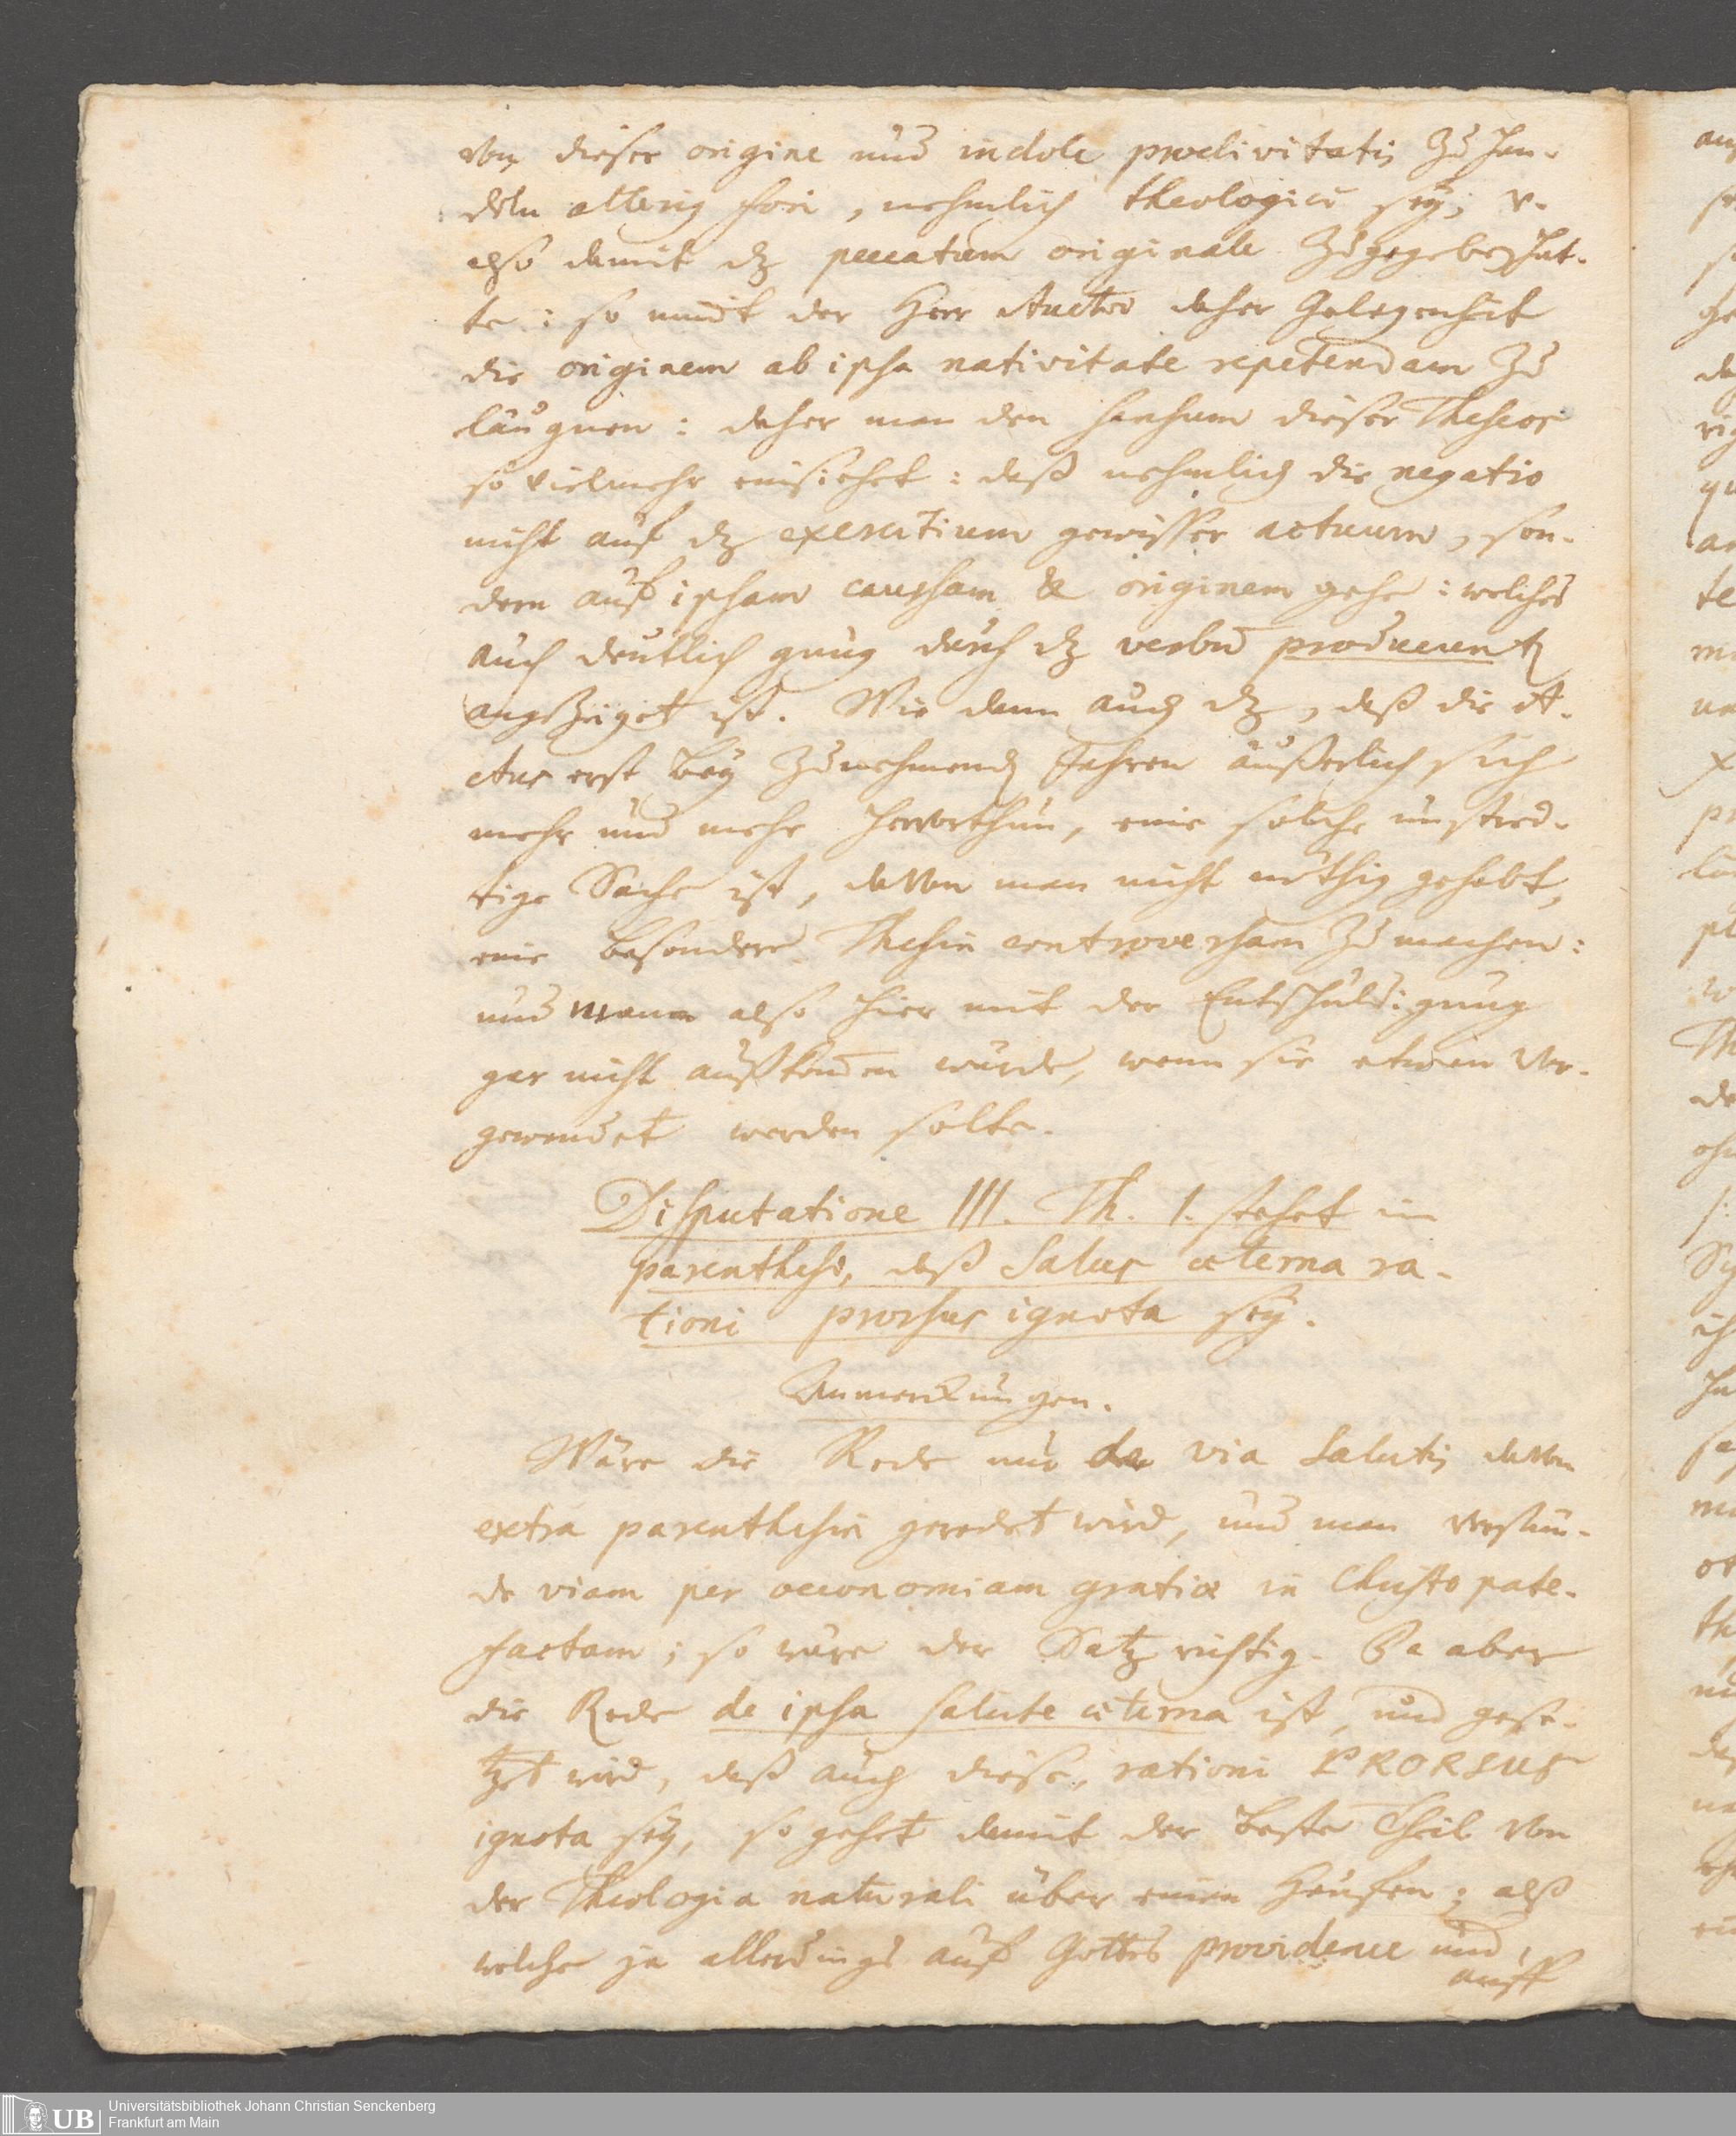 von dieser origine und indole proclivitatis zu han-
deln alterig fori, nehmlich theologici sey; v.
also damit dz peccatum originale zugegeben hät-
te: so nim̄t der Herr Auctor daher Gelegenheit
die originem ab ipsa nativitate repetendam zu
läugnen: daher man den sensum dieser Theseos
so vielmehr einsiehet: daß nehmlich die negatio
nicht auf dz exercitium gewisser actuum, son-
dern auf ipsam caussam & originem gehe: welches
auch deutlich gnug durch dz verbū producunt
angezeiget ist. Wie denn auch dz, daß die A-
ctus erst bey zunehmenden Jahren äußerlich sich
mehr und mehr hervorthun, eine solche unstrei-
tige Sache ist, davon man nicht nöthig gehabt,
eine besondere Thesin controversam zu machen:
und mann also hier mit der Entschuldigung
gar nicht auskom̄en würde, wenn sie etwan vor-
gewendet werden solte.
Disputatione III. Th. 1. stehet in
parenthesi, daß Salus æterna ra-
tioni prorsus ignota sey.
Anmerckungen.
Wäre die Rede nur de via Salutis davon
extra parenthesin geredet wird, und man verstün-
de viam per oeconomiam gratiæ in Christo pate-
factam; so wäre der Satz richtig. Da aber
die Rede de ipsa salute æterna ist, und gese-
tzet wird, daß auch diese, rationi PRORSUS
ignota sey, so gehet damit der beste Theil von
der Theologia naturali über einen Haufen; alß
welche ja allerdings auf Gottes providence und
auff
Universitätsbibliothek Johann Christian Senckenberg
Frankfurt am Main
UB